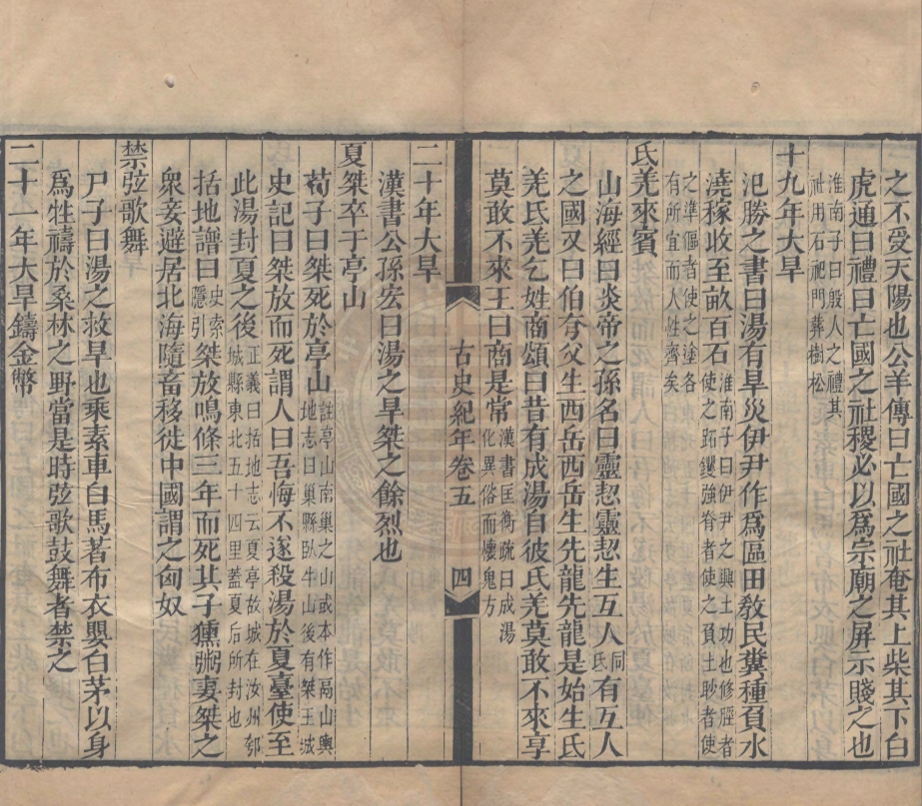 之不受天陽也公羊傳曰亡國之社奄其上柴其下白
虎通曰禮曰亡國之社稷必以爲宗廟之屏示賤之也
淮南子曰殷人之禮其
社用石祀門葬樹松
十九年大旱
氾勝之書曰湯有旱災伊尹作爲區田敎民糞種負水
澆稼收至畝百石淮南子曰伊尹之興土功也修脛者
使之跖钁強脊者使之負土眇者使
之準傴者使之塗各
有所宜而人性齊矣
氐羌來賓
山海經曰炎帝之孫名曰靈恝靈恝生互人同氏有互人
之國又曰伯夸父生西岳西岳生先龍先龍是始生氐
羌氐羌乞姓商頌曰昔有成湯自彼氐羌莫敢不來享
莫敢不來王曰商是常漢書匡衡疏曰成湯
化異俗而懷鬼方
古史紀年卷五
四
二十年大旱
漢書公孫宏曰湯之旱桀之餘烈也
夏桀卒于亭山
荀子曰桀死於亭山註亭山南巢之山或本作鬲山輿
地志曰巢縣臥牛山後有桀王城
史記曰桀放而死謂人曰吾悔不遂殺湯於夏臺使至
此湯封夏之後正義曰括地志云夏亭故城在汝州郟
城縣東北五十四里蓋夏后所封也
括地譜曰史索
隱引桀放鳴條三年而死其子獯粥妻桀之
衆妾避居北海隨畜移徙中國謂之匈奴
禁弦歌舞
尸子曰湯之救旱也乘素車白馬著布衣嬰白茅以身
爲牲禱於桑林之野當是時弦歌鼓舞者禁之
二十一年大旱鑄金幣